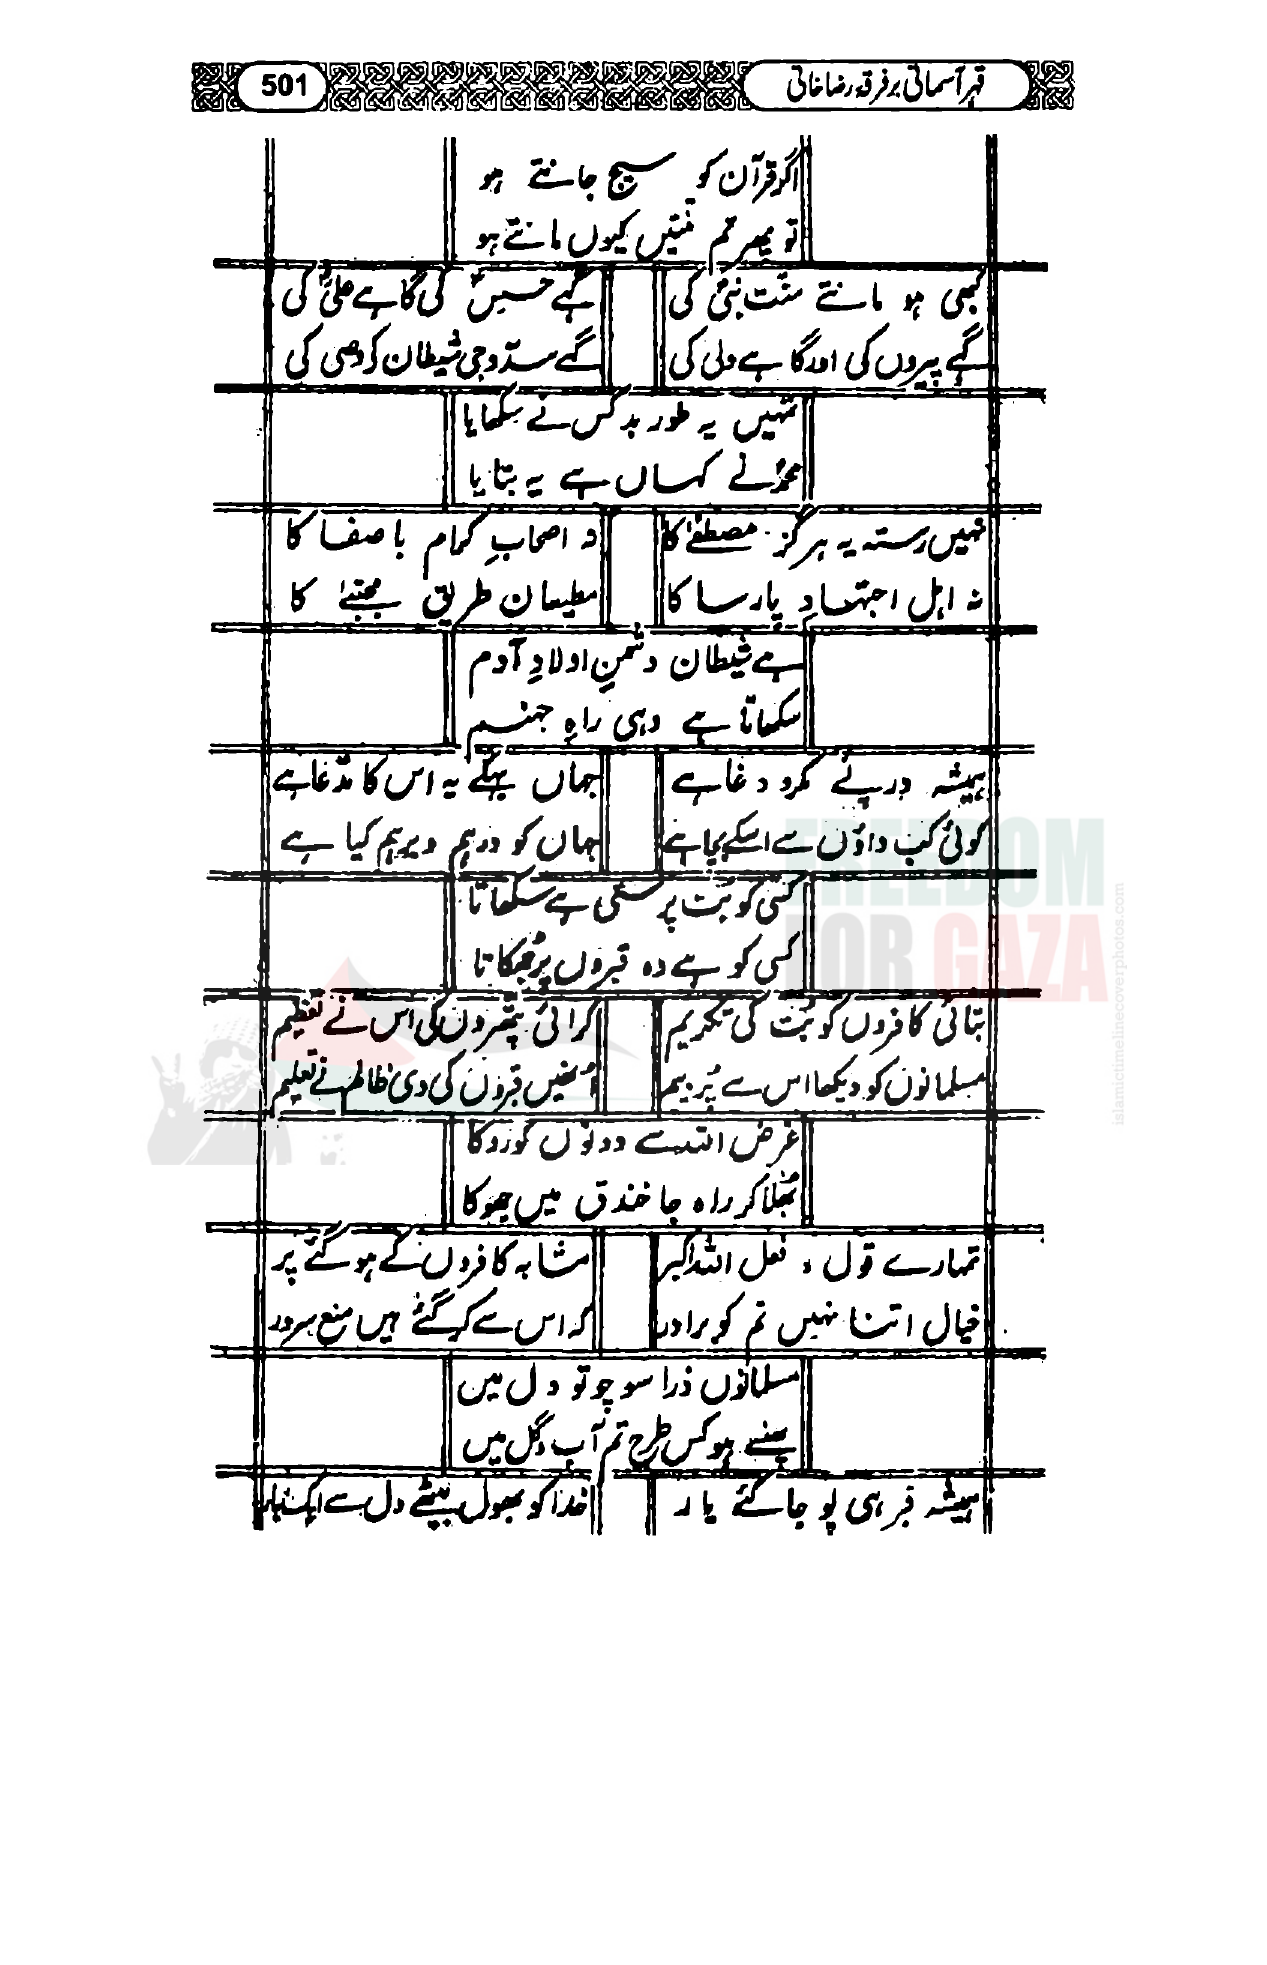 قہر آسمانی بر فرقہ رضاخانی
501
اگر قرآن کو سچ جانتے ہو
تو پھر تم منتیں کیوں مانتے ہو
کبھی ہو مانتے منت نبیؐ کی
گہے حسینؓ کی گاہے علیؓ کی
گہے پیروں کی اور گاہے ولی کی
گہے سدو جی شیطان کی
تمہیں یہ طور بد کس نے سکھایا
محمدؐ نے کہاں ہے یہ بتایا
نہیں رستہ یہ ہرگز مصطفےٰ کا
نہ اصحابِ کرام با صفا کا
نہ اہل اجتہادِ پارسا کا
مطیعان طریق مجتبےٰ کا
ہے شیطان دشمنِ اولادِ آدم
سکھاتا ہے وہی راہِ جہنم
ہمیشہ درپئے مکر و دغا ہے
جہاں بہکے یہ اس کا مدعا ہے
کوئی کب داؤں سے اسکے بچا ہے
جہاں کو درہم و برہم کیا ہے
کسی کو بت پرستی ہے سکھاتا
کسی کو ہے وہ قبروں پر جھکاتا
بتائی کافروں کو بُت کی تکریم
کرائی پتھروں کی اس نے تعظیم
مسلمانوں کو دیکھا اس سے پُر بیم
اُنھیں قبروں کی دی ظالم نے تعلیم
غرض اللہ سے دونوں کو روکا
بُھلا کر راہ جا خندق میں جھوکا
تمہارے قول و فعل اللہ اکبر
مشابہ کافروں کے ہو گئے پر
خیال اتنا نہیں تم کو برادر
کہ اس سے کر گئے ہیں منع سرور
مسلمانوں ذرا سوچو تو دل میں
پھنسے ہو کس طرح تم آب و گل میں
ہمیشہ قبر ہی پوجا گئے یار
خدا کو بھول بیٹھے دل سے ایک بار
FREEDOM
FOR GAZA
islamictimelinecoverphotos.com